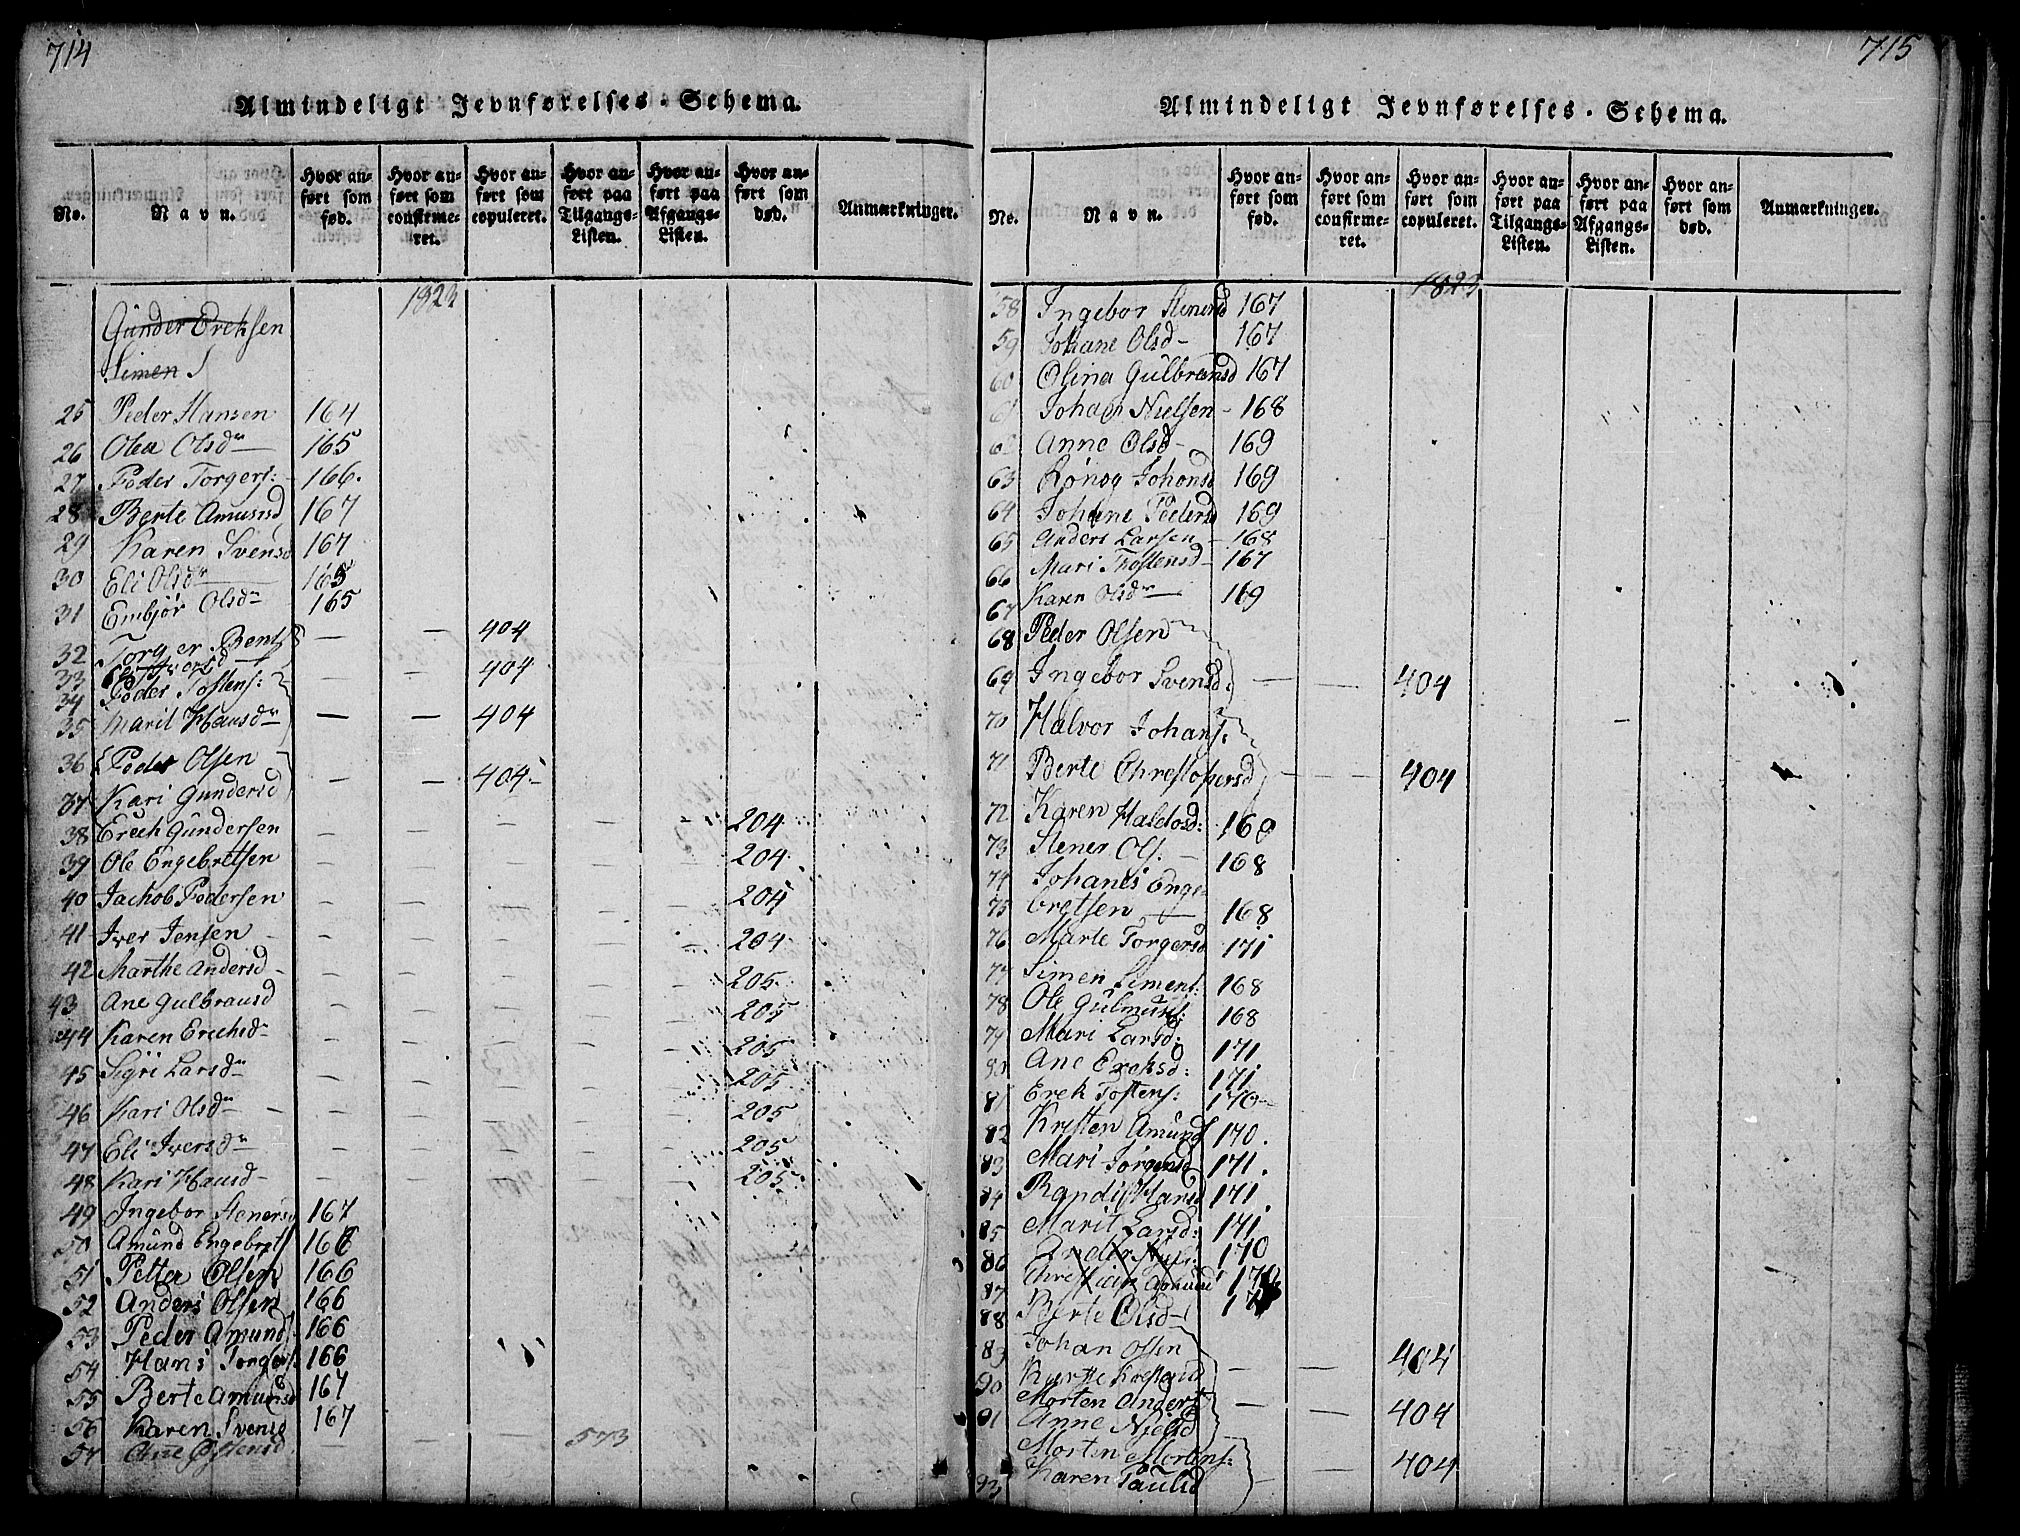 714
Almindeligt Jevnførelses-Schema.
No.
Navn.
Hvor anført som fød.
Hvor anført som confirmeret.
Hvor anført som copuleret.
Hvor anført paa Tilgangs-Listen.
Hvor anført paa Afgangs-Listen.
Hvor anført som død.
Anmærkninger.
1823
Gunder Ereksen
Simen
25 Peder Hansen 164
26 Olea Olsdr 165
27 Peder Torgers: 166.
28 Berte Amunsd 167
29 Karen Svensd 167
30 Eli Olsdr 165
31 Embjør Olsdr 165
32 Torger Bents — — 404
33 — — 404
34 Peder Tostens:
35 Marit Hansdr — — 404
36 Peder Olsen
37 Kari Gundersd — — 404-
38 Erich Gundersen — — — — — 204
39 Ole Engebretsen — — — — — 204
40 Jachob Pedersen — — — — — 204
41 Iver Jensen — — — — — 204
42 Marthe Andersd — — — — — 205
43 Ane Gulbransd — — — — — 205
44 Karen Erichsd — — — — — 205
45 Sigri Larsdr — — — — — 205
46 Kari Olsdr — — — — — 205
47 Eli Iversdr — — — — — 205
48 Kari Hansd — — — — — 205
49 Ingebor Stenersd 167
50 Amund Engebrets 166
51 Petter Olsen 166
52 Anders Olsen 166
53 Peder Amunds 166
54 Hans Torgers 166
55 Berte Amunsd 167
56 Karen Svensd 167
57 Ane Østensd — — — 573
715
Almindeligt Jevnførelses-Schema.
No.
Navn.
Hvor anført som fød.
Hvor anført som confirmeret.
Hvor anført som copuleret.
Hvor anført paa Tilgangs-Listen.
Hvor anført paa Afgangs-Listen.
Hvor anført som død.
Anmærkninger.
1823
58 Ingebor Stenersd 167
59 Johane Olsd 167
60 Olina Gulbransd 167
Johan Nielsen 168
Anne Olsd 169
63 Rønog Johansd 169
64 Johane Pedersd 169
65 Anders Larsen 168
66 Mari Tostensd 167
67 Karen Olsdr 169
68 Peder Olsen
69 Ingebor Svensd: — — 404
70 Halvor Johans:
71 Berte Christopersd — — 404
72 Karen Haldosd:
73 Stener Ols. 168
74 Johanes Enge-
75 bretsen 168
76 Marte Torgersd 171
77 Simen Simens: 168
78 Ole Gulmunds: 168
79 Mari Larsd: 171
Ane Ereksd: 171
81 Erek Tostens: 170
82 Kristen Amunds 170.
83 Mari Jørgensd 171.
84 Randi Hansd 171.
85 Marit Larsd: 171.
86 170
87
88 Berte Olsd
89 Johan Olsen — — 404
90
Morten Anders — — 404
91 Anne Nielsd
Morten Mortens: — — 404
93 Karen Paulsd